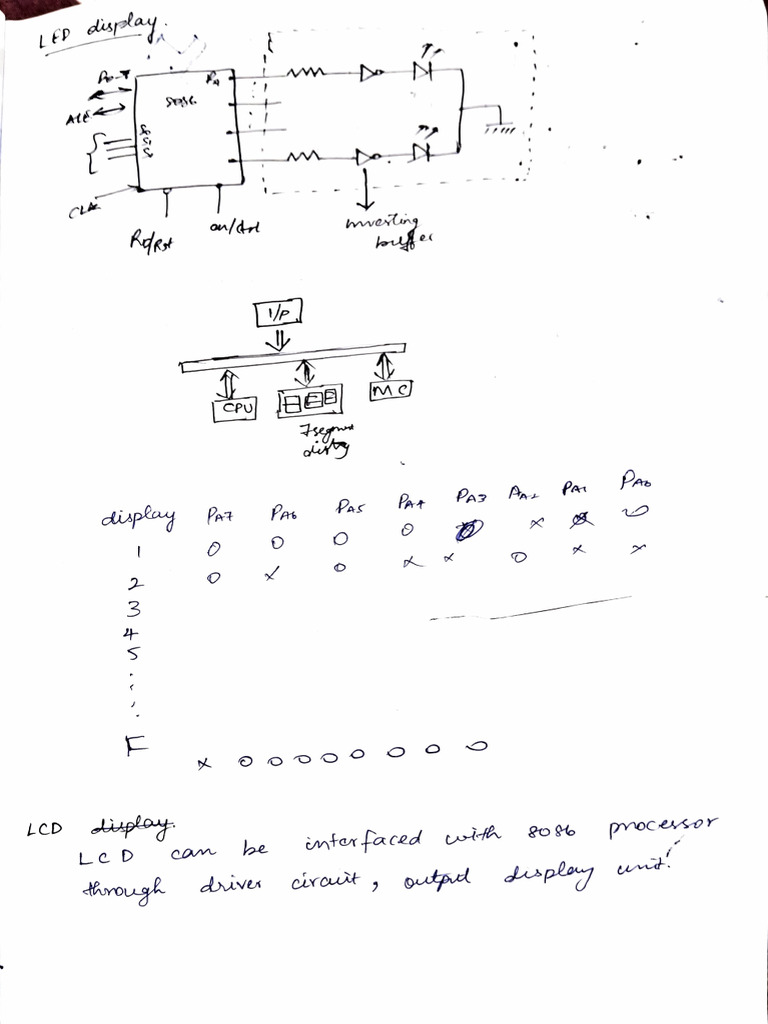 LED display.
D0-7
PA
8086
ALE
CLK
Rd/Rst
inverting
buffer
I/P
CPU
MC
7segment
display PA7 PA6 PA5 PA4 PA3 PA2 PA1 PA0
1 0 0 0 0 x 0
2 0 x 0 x x 0 x x
3
4
5
F x 0 0 0 0 0 0 0 0
LCD display.
LCD can be interfaced with 8086 processor
through driver circuit, output display unit.